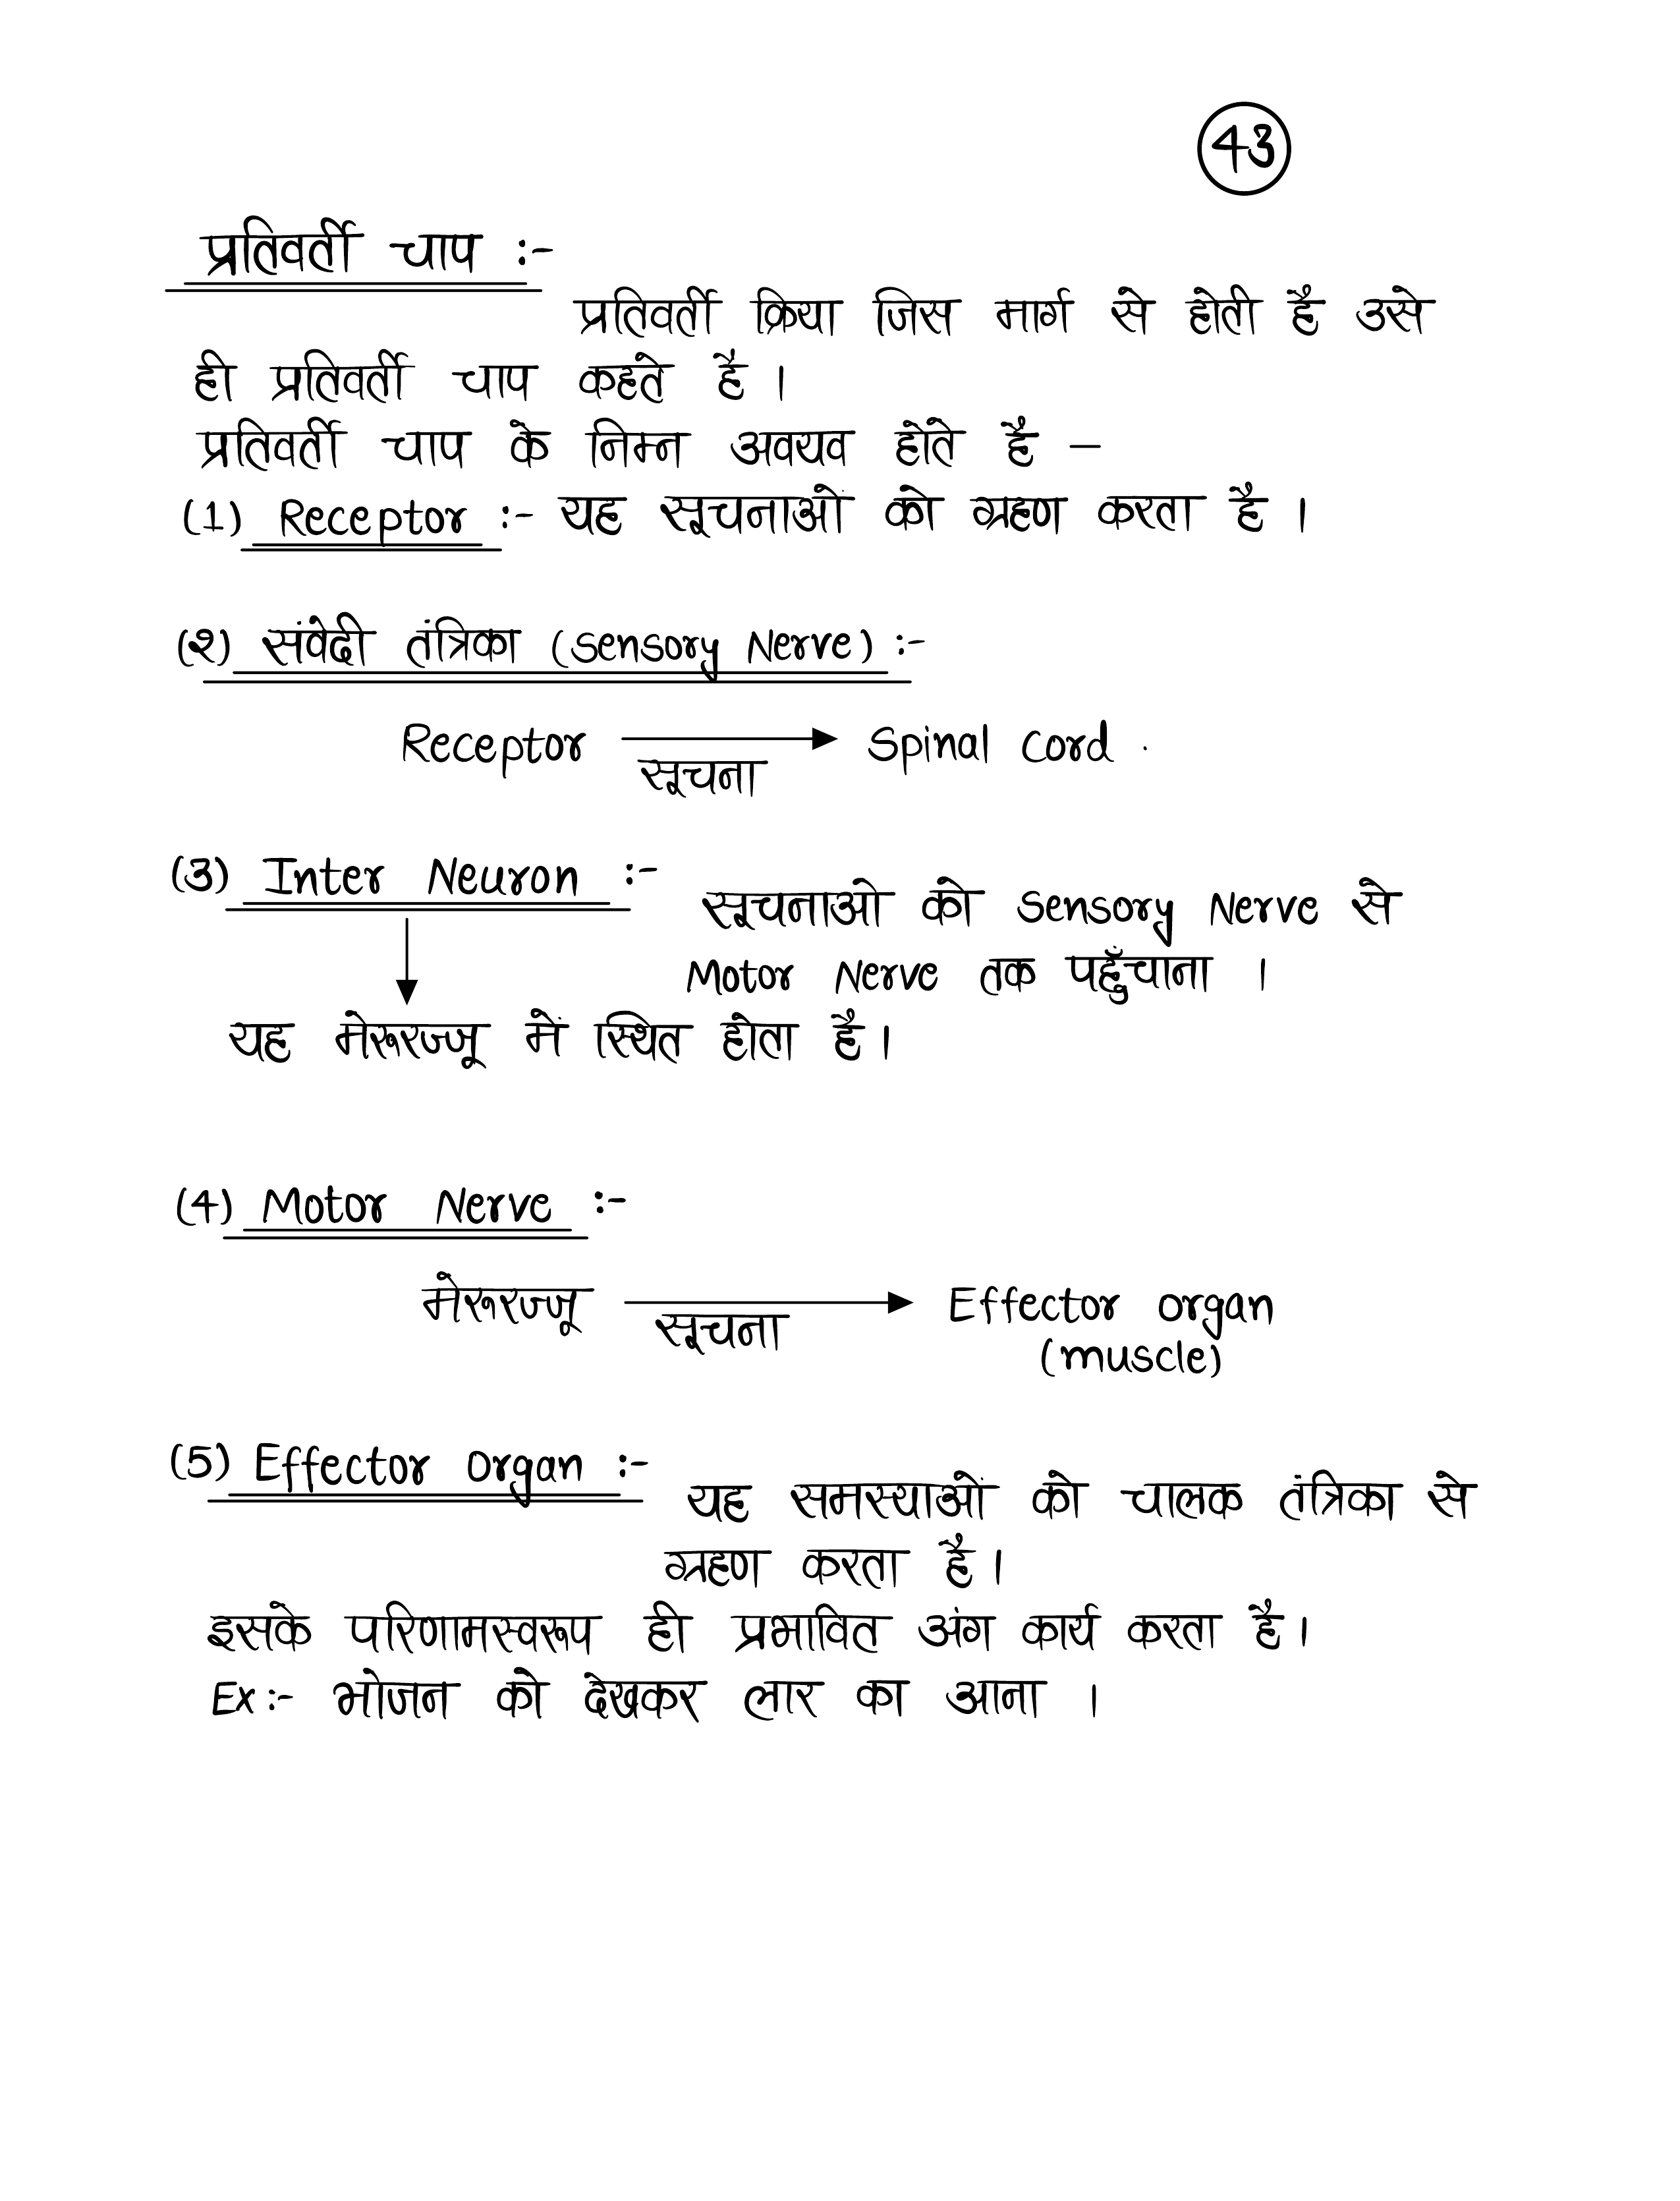 43
प्रतिवर्ती चाप :-
प्रतिवर्ती क्रिया जिस मार्ग से होती है उसे
ही प्रतिवर्ती चाप कहते है ।
प्रतिवर्ती चाप के निम्न अवयव होते है –
(1) Receptor :- यह सूचनाओ को ग्रहण करता है ।
(2) संवेदी तंत्रिका (Sensory Nerve) :-
Receptor → Spinal Cord .
सूचना
(3) Inter Neuron :-
सूचनाओ को Sensory Nerve से
Motor Nerve तक पहुँचाना ।
यह मेरूरज्जू में स्थित होता है ।
(4) Motor Nerve :-
मेरूरज्जू → Effector organ
सूचना
(muscle)
(5) Effector Organ :-
यह समस्याओं को चालक तंत्रिका से
ग्रहण करता है ।
इसके परिणामस्वरूप ही प्रभावित अंग कार्य करता है ।
Ex :- भोजन को देखकर लार का आना ।